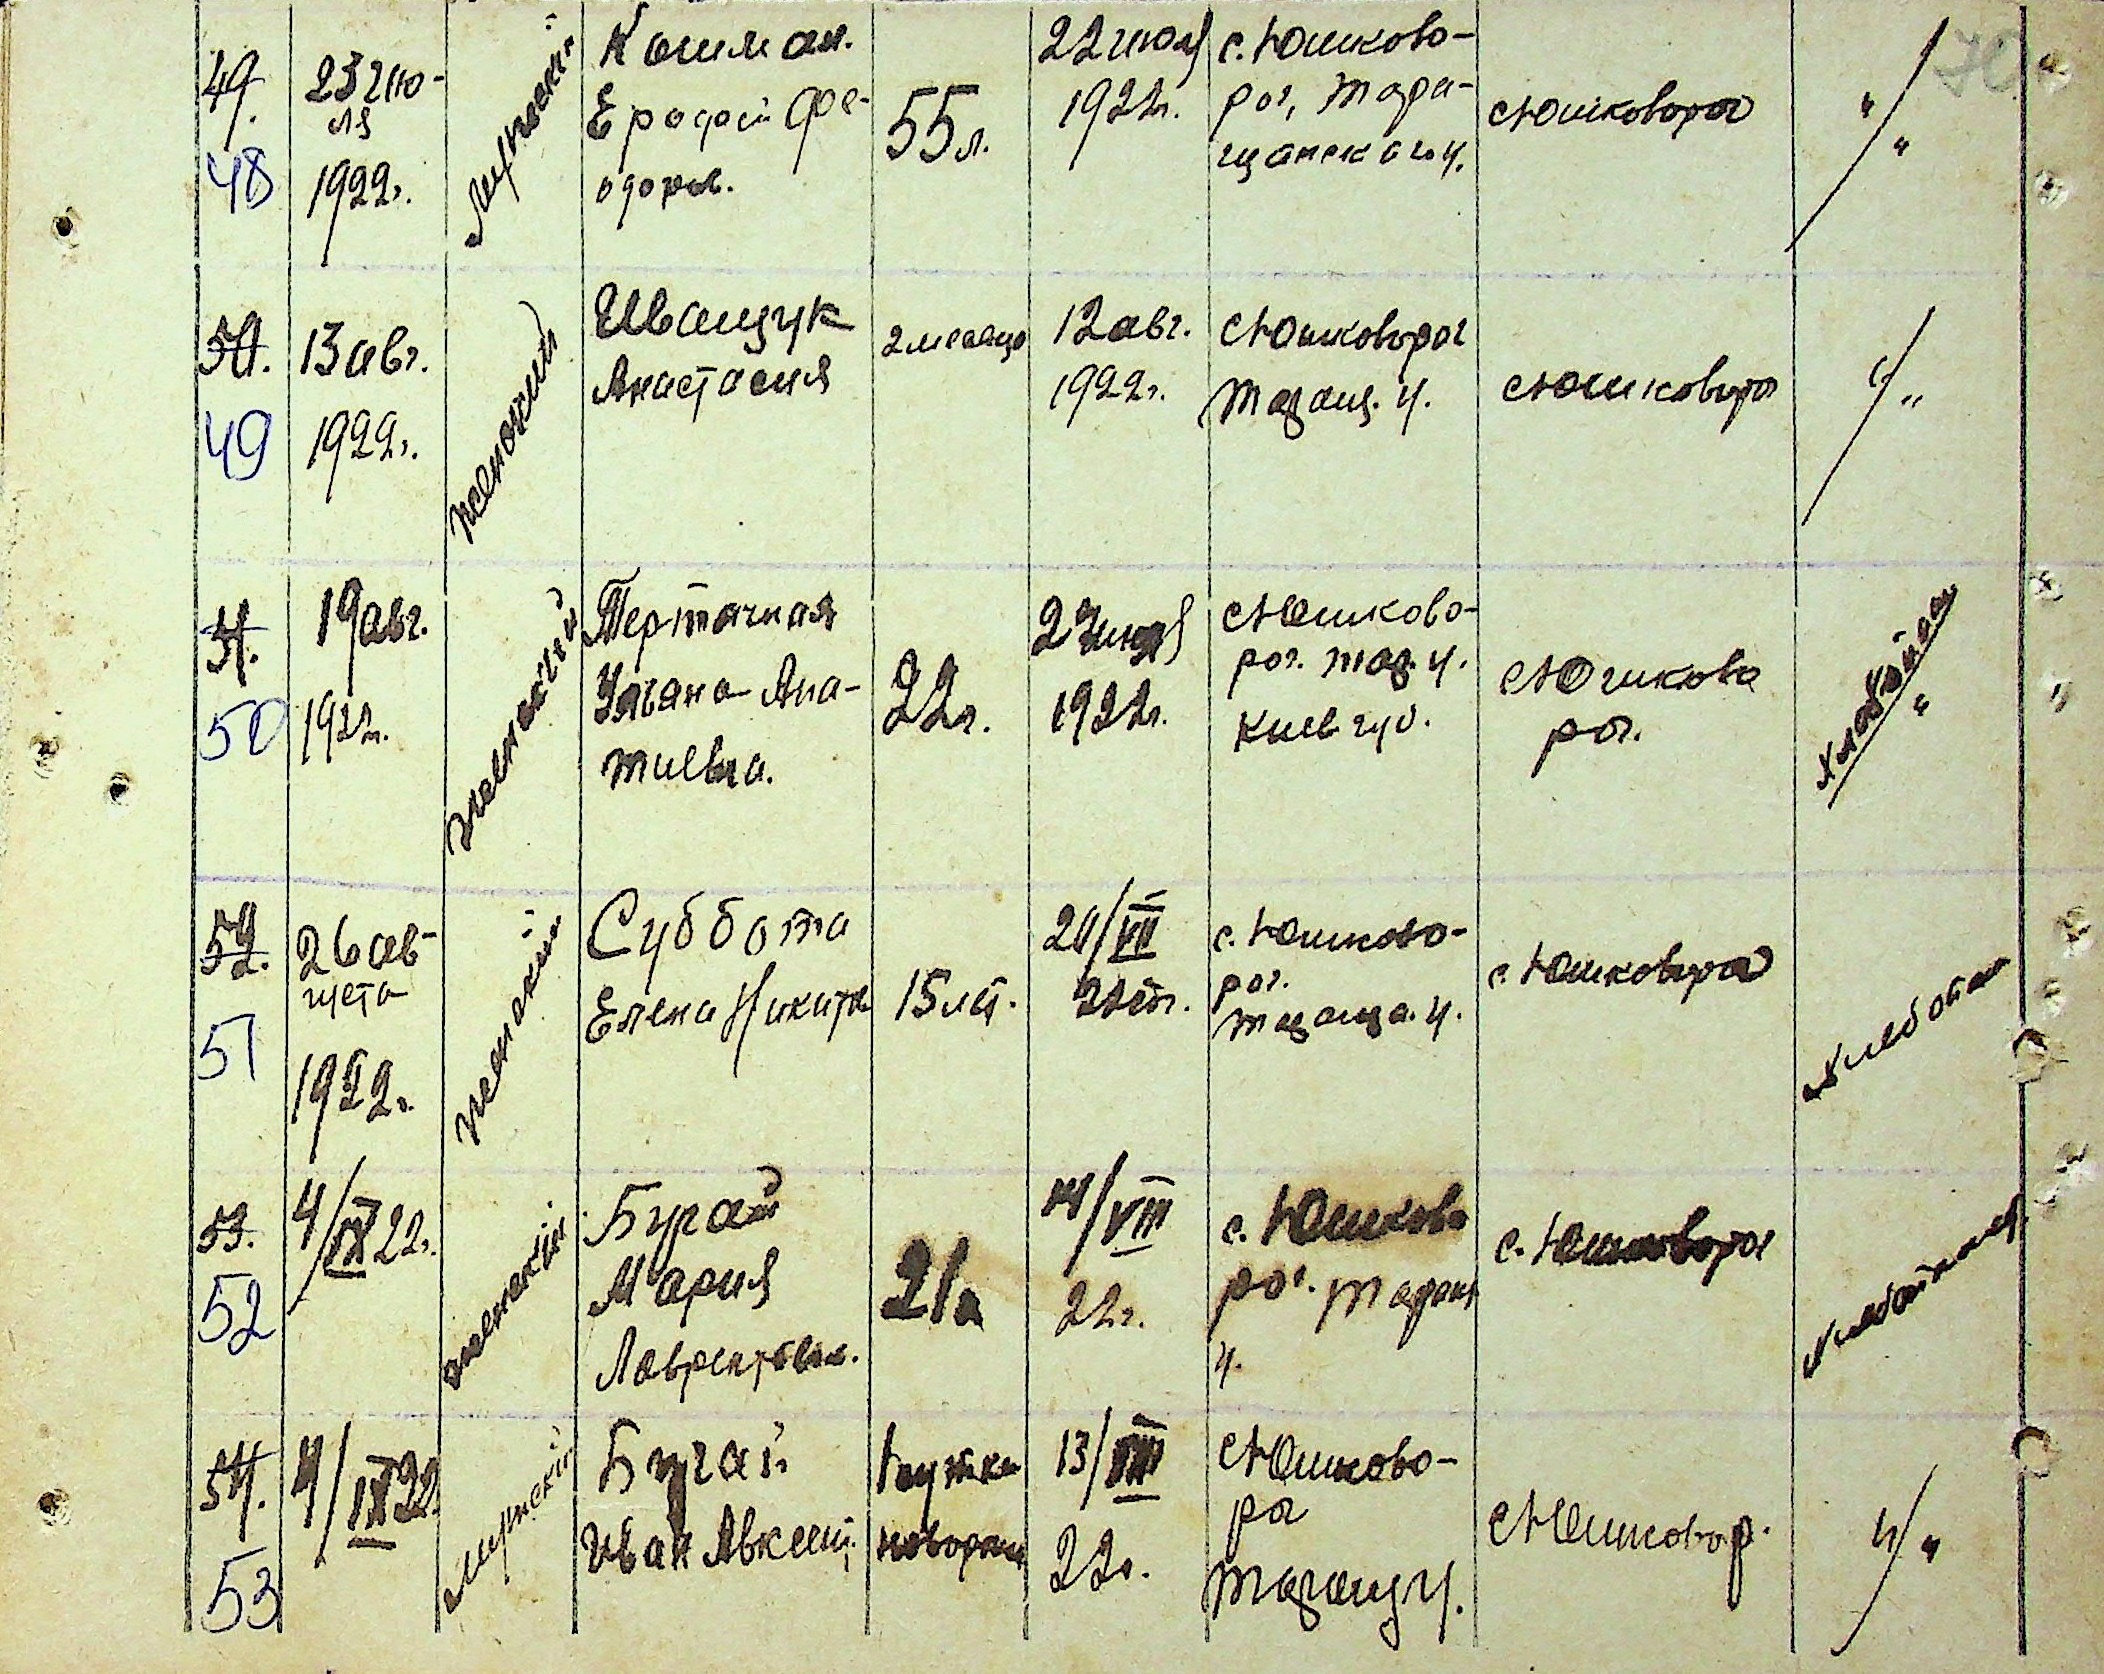 49.
48
23 июля
1922г.
мужской
Кошман.
Ерофей Фе-
одоров.
55 л.
22 июля
1922г.
с. Юшково-
рог, Тара-
щанског у.
с Юшковорог
" "
50.
49
13 авг.
1922г.
женский
Иващук
Анастасия
2 месяца
12 авг.
1922г.
с Юшковорог
Таращ. у.
с Юшковорог
" "
51.
50
19 авг.
1922г.
женский
Тертачная
Ульяна Ипа-
тиевна.
22г.
1922г.
с Юшково-
рог. Тар. у.
Киев губ.
с Юшкова
рог.
"
52.
51
26 ав-
густа
1922г.
женский
Суббота
Елена Никит
15 лет.
с. Юшково-
рог.
Тараща. у.
с. Юшковорог
хлебопаш
53.
52
4/IX 22г.
женский
Бугай
Мария
Лаврентьевн.
21г
14/VIII
22г.
с. Юшково
рог. Таращ
у.
с. Юшковорог
54.
53
4/IX 22г.
мужской
Бугай
Иван Авксент.
13/VIII
22г.
с Юшково-
рог
Таращ у.
с Юшковор.
" "